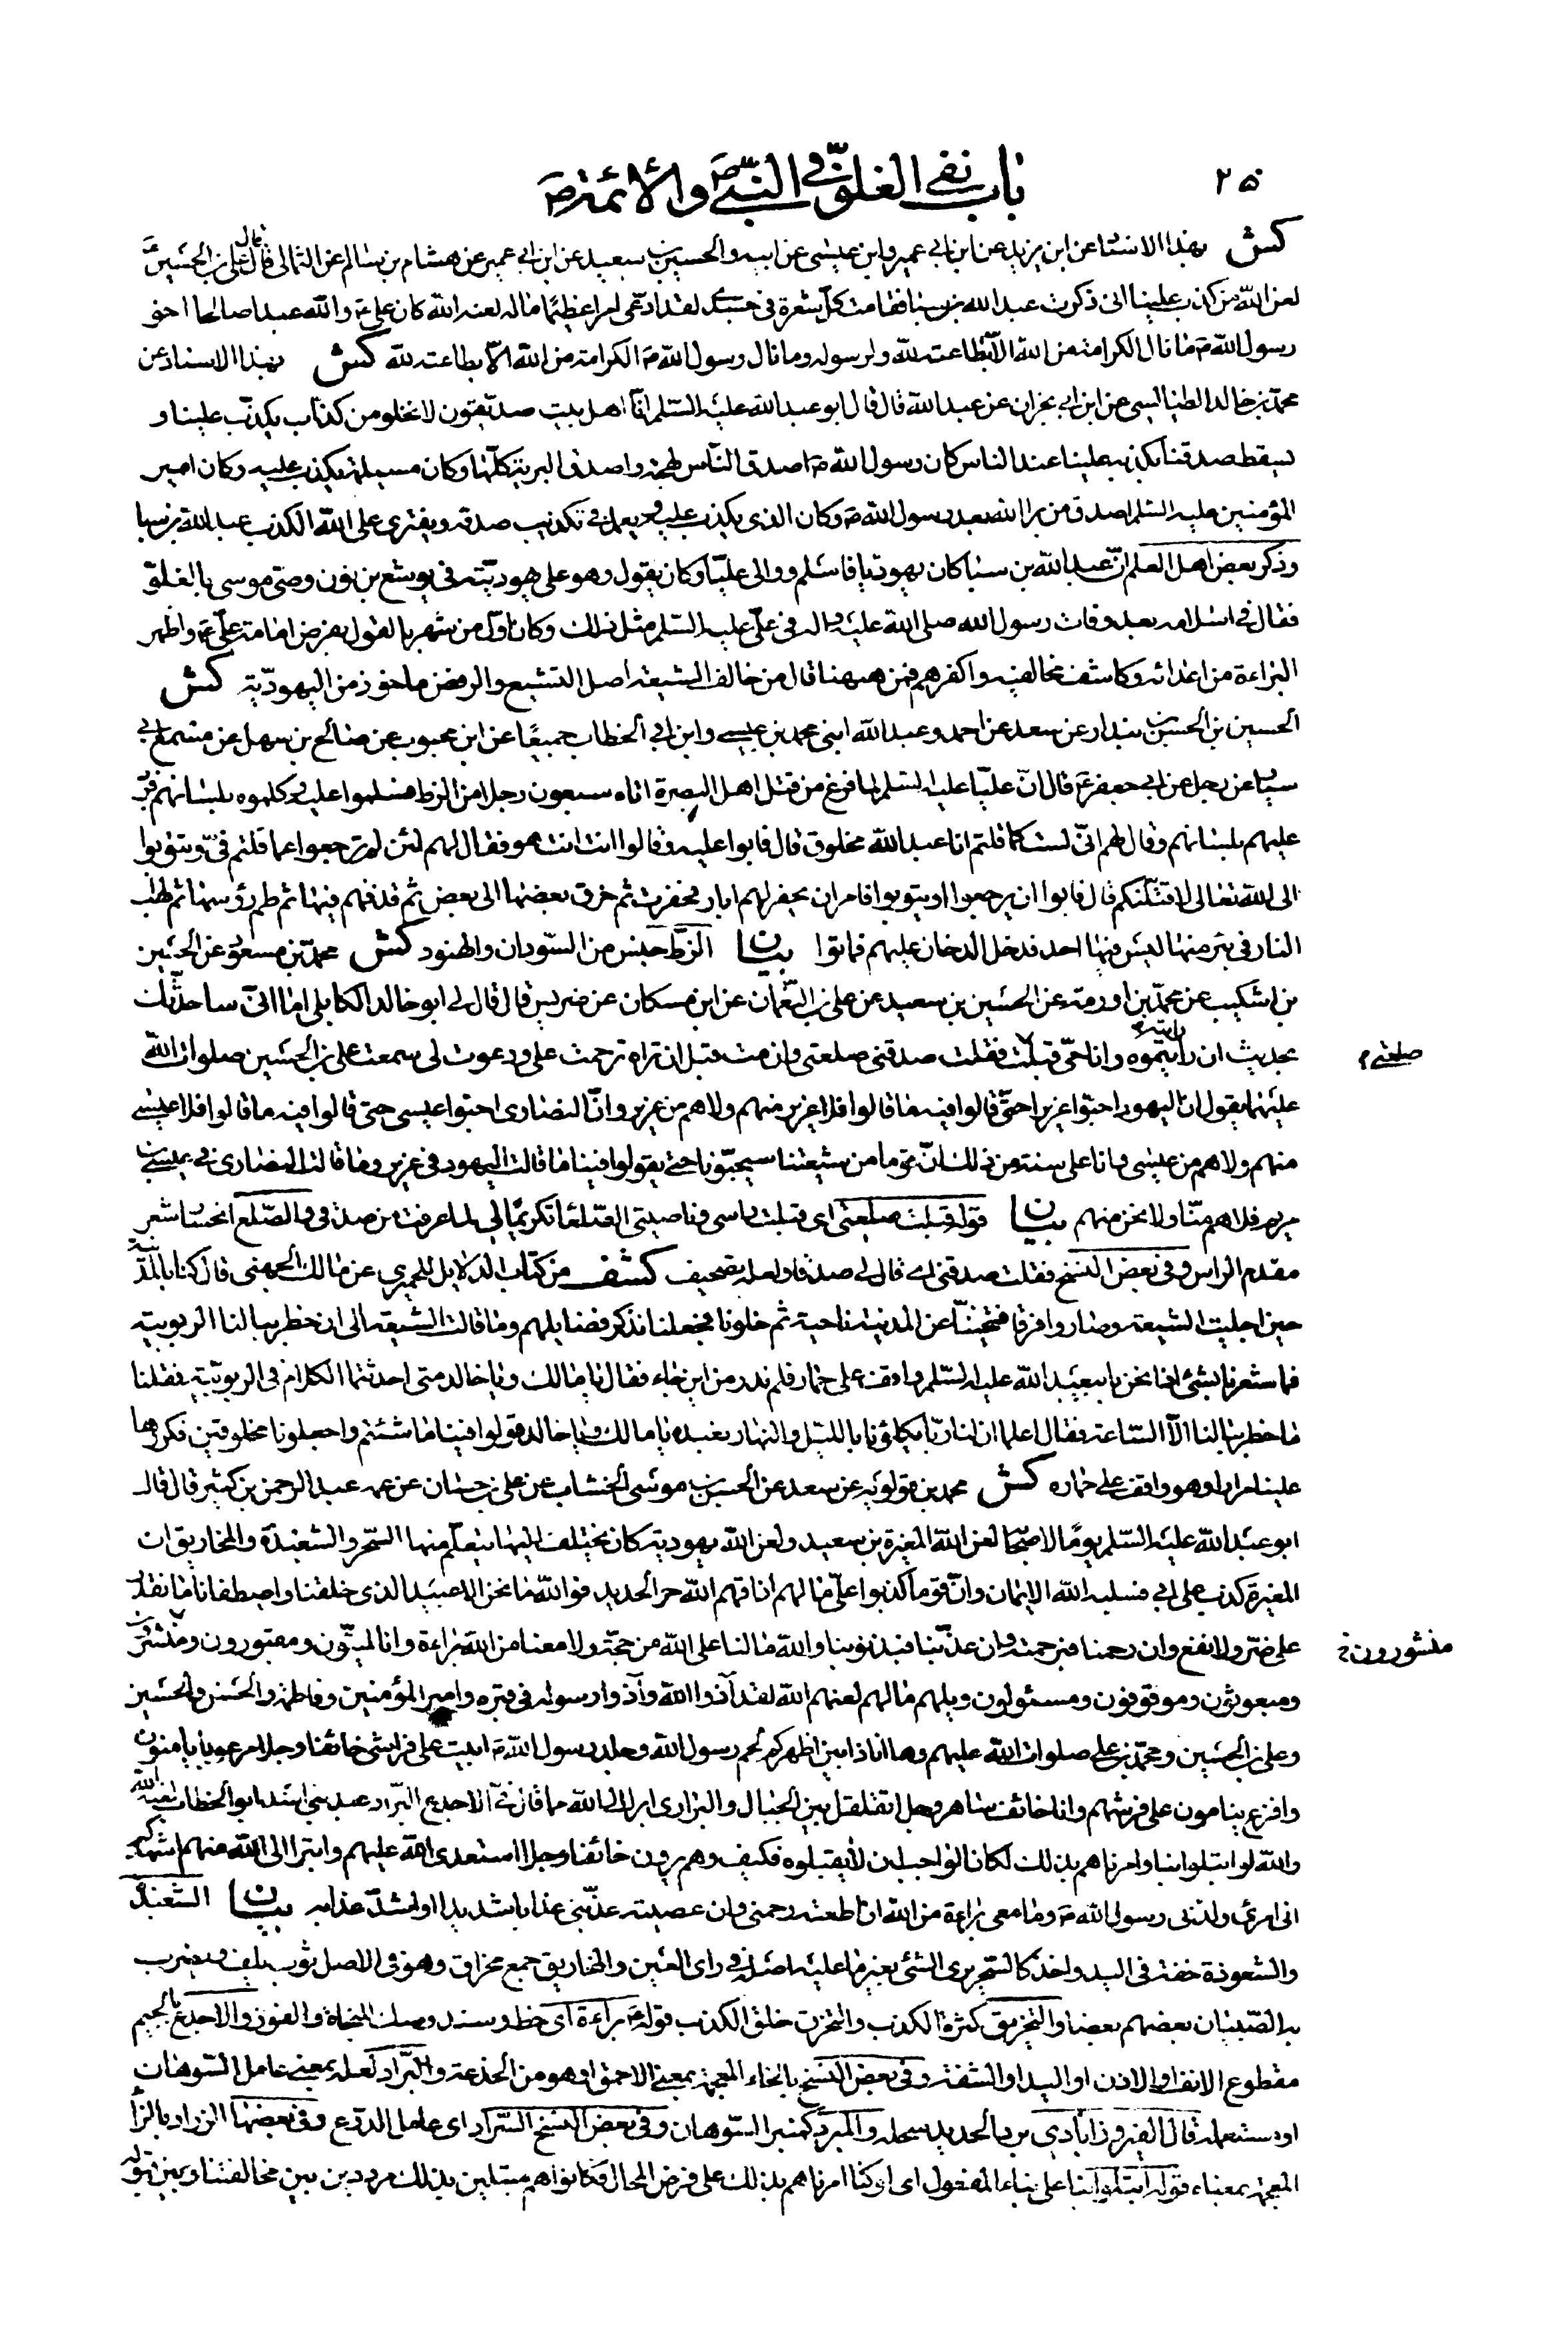 باب نفي الغلوّ في النبيّ ص والأئمة ص
٢٥٠
كش بهذا الاسناد عن ابن يزيد عن ابن ابي عمير وابن عيسى عن ابيه والحسين بن سعيد عن ابن ابي عمير عن هشام بن سالم عن الثمالي قال قال علي بن الحسين ع
لعن الله من كذب علينا اني ذكرت عبد الله بن سبا فقامت كل شعرة في جسدي لقد ادعى امرا عظيما ما له لعنه الله كان علي ع والله عبدا صالحا اخو
رسول الله ص ما نال الكرامة من الله الا بطاعته لله ولرسوله وما نال رسول الله ص الكرامة من الله الا بطاعته لله كش بهذا الاسناد عن
محمد بن خالد الطيالسي عن ابن ابي نجران عن عبد الله قال قال ابو عبد الله عليه السلم انا اهل بيت صديقون لا نخلو من كذاب يكذب علينا و
يسقط صدقنا بكذبه علينا عند الناس كان رسول الله ص اصدق الناس لهجة واصدق البرية كلها وكان مسيلمة يكذب عليه وكان امير
المؤمنين عليه السلم اصدق من برا الله بعد رسول الله ص وكان الذي يكذب عليه ويعمل في تكذيب صدقه ويفتري على الله الكذب عبد الله بن سبا
وذكر بعض اهل العلم ان عبد الله بن سبا كان يهوديا فاسلم ووالى عليا وكان يقول وهو على يهوديته في يوشع بن نون وصي موسى بالغلو
فقال في اسلامه بعد وفات رسول الله صلى الله عليه واله في علي عليه السلم مثل ذلك وكان اول من شهر بالقول بفرض امامة علي ع واظهر
البراءة من اعدائه وكاشف مخالفيه واكفرهم فمن ههنا قال من خالف الشيعة اصل التشيع والرفض ماخوذ من اليهودية كش
الحسين بن الحسن بن بندار عن سعد عن احمد وعبد الله ابني محمد بن عيسى وابن ابي الخطاب جميعا عن ابن محبوب عن صالح بن سهل عن مسمع ابي
سيار عن رجل عن ابي جعفر ع قال ان عليا عليه السلم لما فرغ من قتل اهل البصرة اتاه سبعون رجلا من الزط فسلموا عليه وكلموه بلسانهم فرد
عليهم بلسانهم وقال لهم اني لست كما قلتم انا عبد الله مخلوق قال فابوا عليه وقالوا انت انت هو فقال لهم لئن لم ترجعوا عما قلتم في وتتوبوا
الى الله تعالى لاقتلنكم قال فابوا ان يرجعوا او يتوبوا فامر ان يحفر لهم ابار فحفرت ثم خرق بعضها الى بعض ثم قذفهم فيها ثم طم رؤسها ثم الهب
النار في بئر منها ليس فيها احد فدخل الدخان عليهم فماتوا بيان الزط جنس من السودان والهنود كش محمد بن مسعود عن الحسين
بن اشكيب عن محمد بن اورمة عن الحسين بن سعيد عن علي بن النعمان عن ابن مسكان عن ضريس قال قال لي ابو خالد الكابلي اما اني ساحدثك
بحديث ان رايتموه وانا حي قبلت صلعتي فقلت صدقني وان مت قبل ان تراه ترحمت علي ودعوت لي سمعت علي بن الحسين صلوات الله
صلعتي م
عليهما يقول ان اليهود احبوا عزيرا حتى قالوا فيه ما قالوا فلا عزير منهم ولا هم من عزير وان النصارى احبوا عيسى حتى قالوا فيه ما قالوا فلا عيسى
منهم ولا هم من عيسى وانا على سنة من ذلك ان قوما من شيعتنا سيحبونا حتى يقولوا فينا ما قالت اليهود في عزير وما قالت النصارى في عيسى بن
مريم فلا هم منا ولا نحن منهم بيان قوله قبلت صلعتي اي قبلت راسي وناصيتي الصلعاء تكريما لي لما عرفت من صدقي والصلع انحسار شعر
مقدم الراس وفي بعض النسخ فقلت صدقني اي قال لي صدقا ولعله تصحيف كشف من كتاب الدلايل للحميري عن مالك الجهني قال كنا بالمدينة
حين اجليت الشيعة وصاروا فرقا فتنحينا عن المدينة ناحية ثم خلونا فجعلنا نذكر فضايلهم وما قالت الشيعة الى ان خطر ببالنا الربوبية
فما شعرنا بشيء اذا نحن بابيعبد الله عليه السلم واقف على حمار فلم ندر من اين جاء فقال يا مالك ويا خالد متى احدثتما الكلام في الربوبية فقلنا
ما خطر ببالنا الا الساعة فقال اعلما ان لنا ربا يكلؤنا بالليل والنهار نعبده يا مالك ويا خالد قولوا فينا ما شئتم واجعلونا مخلوقين فكررها
علينا مرارا وهو واقف على حماره كش محمد بن قولويه عن سعد عن الحسن بن موسى الخشاب عن علي بن حسان عن عمه عبد الرحمن بن كثير قال قال
ابو عبد الله عليه السلم يوما لاصحابه لعن الله المغيرة بن سعيد ولعن الله يهودية كان يختلف اليها يتعلم منها السحر والشعبذة والمخاريق ان
المغيرة كذب على ابي فسلبه الله الايمان وان قوما كذبوا علي ما لهم اذاقهم الله حر الحديد فوالله ما نحن الا عبيد الذي خلقنا واصطفانا ما نقدر
على ضر ولا نفع وان رحمنا فبرحمته وان عذبنا فبذنوبنا والله ما لنا على الله من حجة ولا معنا من الله براءة وانا لميتون ومقبورون ومنشرون
منشورون خ
ومبعوثون وموقوفون ومسئولون ويلهم ما لهم لعنهم الله لقد آذوا الله وآذوا رسوله في قبره وامير المؤمنين وفاطمة والحسن والحسين
وعلي بن الحسين ومحمد بن علي صلوات الله عليهم وها انا ذا بين اظهركم لحم رسول الله وجلد رسول الله ص ابيت على فراشي خائفا وجلا مرعوبا يامنون
وافزع ينامون على فرشهم وانا خائف ساهر وجل اتقلقل بين الجبال والبراري ابرا الى الله مما قال في الاجدع البراد عبد بني اسد ابو الخطاب لعنه الله
والله لو ابتلوا بنا وامرناهم بذلك لكان الواجب ان لا يقبلوه فكيف وهم يرون خائفا وجلا استعدي الله عليهم واتبرا الى الله منهم اشهدكم
اني امرئ ولدني رسول الله ص وما معي براءة من الله ان اطعته رحمني وان عصيته عذبني عذابا شديدا او اشد عذابه بيان الشعبذة
والشعوذة خفة في اليد واخذ كالسحر يرى الشيء بغير ما عليه اصله في راى العين والمخاريق جمع مخراق وهو في الاصل ثوب يلف ويضرب
به الصبيان بعضهم بعضا والتخريق كثرة الكذب والتخرق خلق الكذب قوله ع براءة اي خط وسند وصك للنجاة والفوز والاجدع بالجيم
مقطوع الانف او الاذن او اليد او الشفة وفي بعض النسخ بالخاء المعجمة بمعنى الاحمق او هو من الخدعة والبراد لعله بمعنى عامل السوهان
او مستعمله قال الفيروزابادي برد الحديد سحله والمبرد كمنبر السوهان وفي بعض النسخ السراد اي عامل الدرع وفي بعضها الزراد بالزاء
المعجمة بمعناه قوله ابتلوا بنا على بناء المفعول اي لو كنا امرناهم بذلك على فرض المحال فكانوا هم مبتلين بذلك مرددين بين مخالفتنا وبين قوله